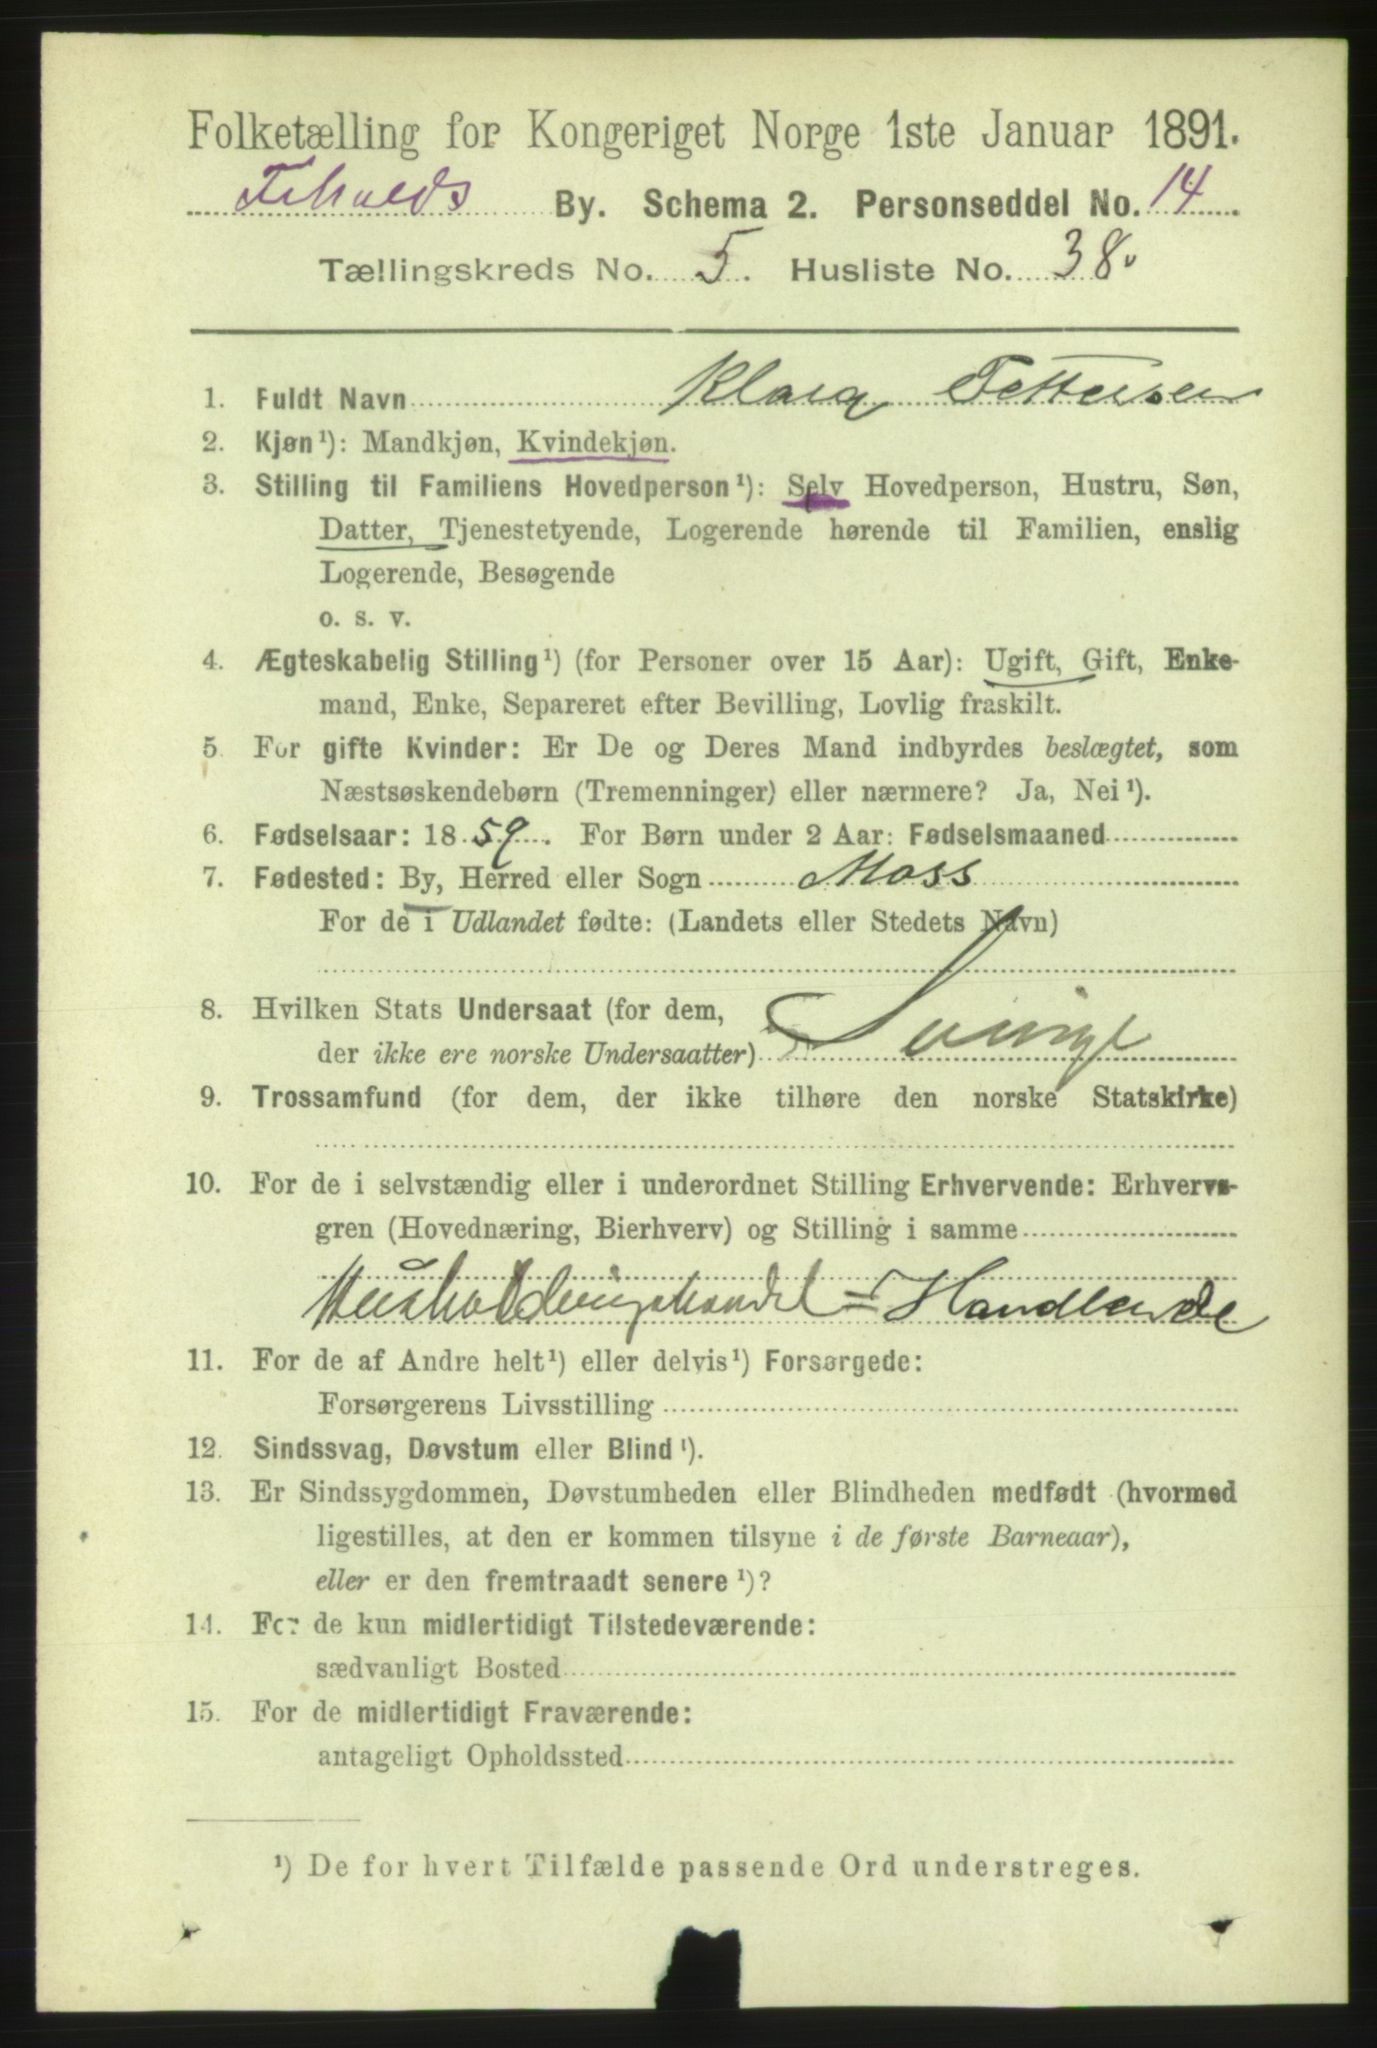 Folketælling for Kongeriget Norge 1ste Januar 1891.
Frhalds By. Schema 2. Personseddel No. 14
Tællingskreds No. 5. Husliste No. 38.
1. Fuldt Navn Klara Pettersen
2. Kjøn¹): Mandkjøn, Kvindekjøn.
3. Stilling til Familiens Hovedperson¹): Selv Hovedperson, Hustru, Søn,
Datter, Tjenestetyende, Logerende hørende til Familien, enslig
Logerende, Besøgende
o. s. v.
4. Ægteskabelig Stilling¹) (for Personer over 15 Aar): Ugift, Gift, Enke-
mand, Enke, Separeret efter Bevilling, Lovlig fraskilt.
5. For gifte Kvinder: Er De og Deres Mand indbyrdes beslægtet, som
Næstsøskendebørn (Tremenninger) eller nærmere? Ja, Nei¹).
6. Fødselsaar: 1859. For Børn under 2 Aar: Fødselsmaaned
7. Fødested: By, Herred eller Sogn Moss
For de i Udlandet fødte: (Landets eller Stedets Navn)
8. Hvilken Stats Undersaat (for dem,
der ikke ere norske Undersaatter)
9. Trossamfund (for dem, der ikke tilhøre den norske Statskirke)
10. For de i selvstændig eller i underordnet Stilling Erhvervende: Erhvervs-
gren (Hovednæring, Bierhverv) og Stilling i samme
Husholdningshandel = Handlende
11. For de af Andre helt¹) eller delvis¹) Forsørgede:
Forsørgerens Livsstilling
12. Sindssvag, Døvstum eller Blind¹).
13. Er Sindssygdommen, Døvstumheden eller Blindheden medfødt (hvormed
ligestilles, at den er kommen tilsyne i de første Barneaar),
eller er den fremtraadt senere¹)?
14. For de kun midlertidigt Tilstedeværende:
sædvanligt Bosted
15. For de midlertidigt Fraværende:
antageligt Opholdssted
¹) De for hvert Tilfælde passende Ord understreges.